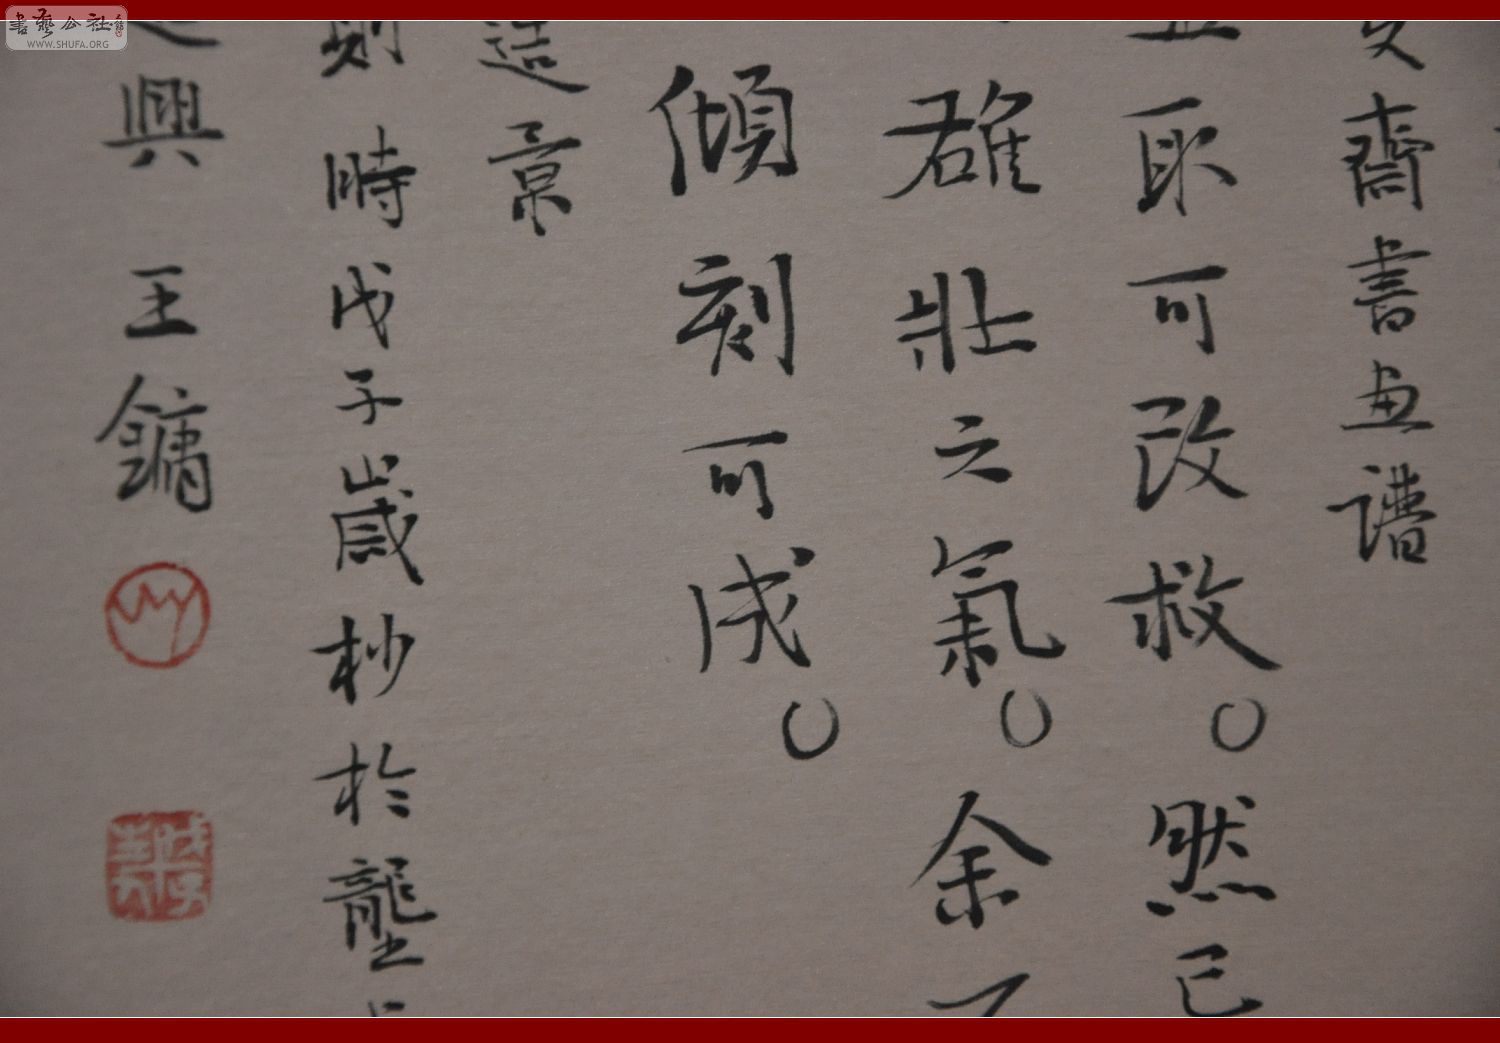 文齋書畫譜
取可改救。然已
雄壯之氣。余
傾刻可成。
造意
則時戊子歲杪於龍
興王鏞
書藝公社
WWW.SHUFA.ORG